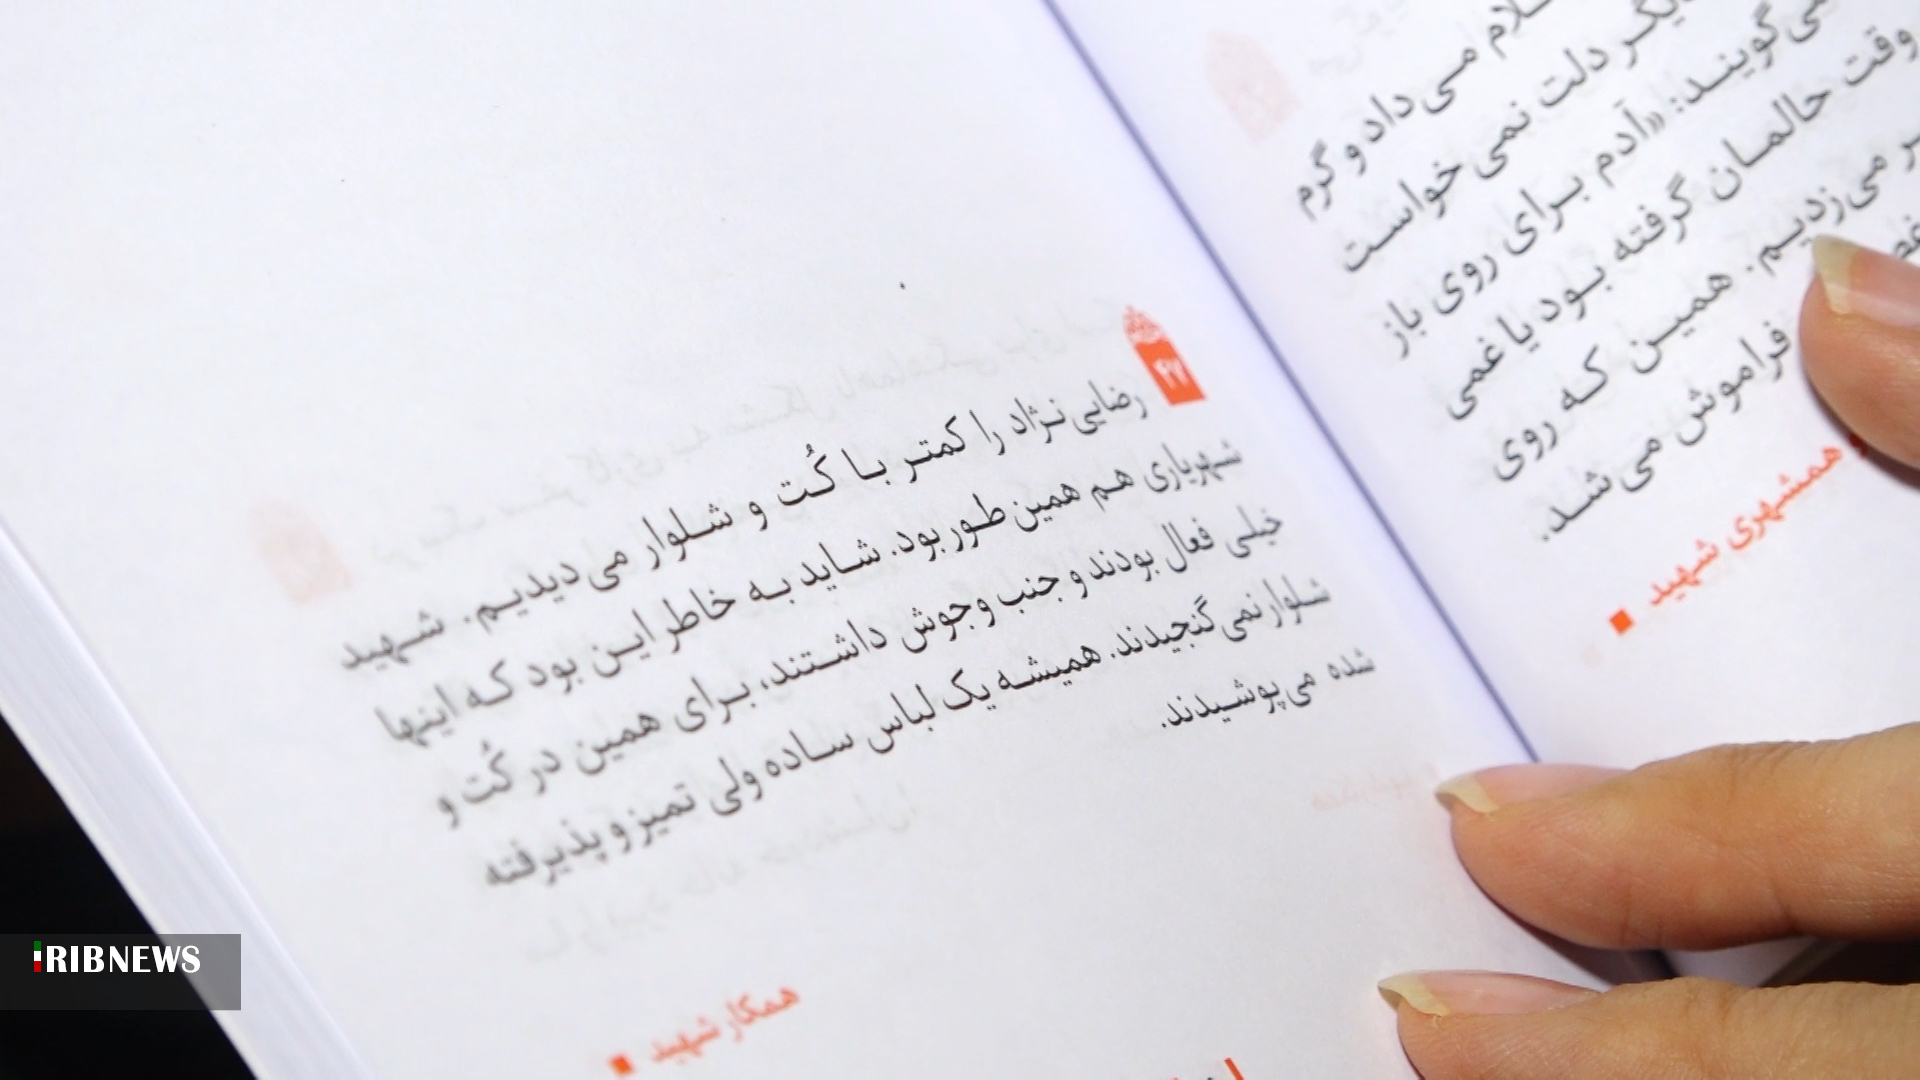 لام می‌داد و گرم
دیگر دلت نمی‌خواست
می‌گویند: «آدم برای روی باز
وقت حالمان گرفته بود یا غمی
می‌زدیم. همین که روی
فراموش می‌شد.
همشهری شهید
۴۷
رضایی‌نژاد را کمتر با کُت و شلوار می‌دیدیم. شهید
شهریاری هم همین طور بود. شاید به خاطر این بود که اینها
خیلی فعال بودند و جنب و جوش داشتند، برای همین در کُت و
شلوار نمی‌گنجیدند. همیشه یک لباس ساده ولی تمیز و پذیرفته
شده می‌پوشیدند.
همکار شهید
IRIBNEWS